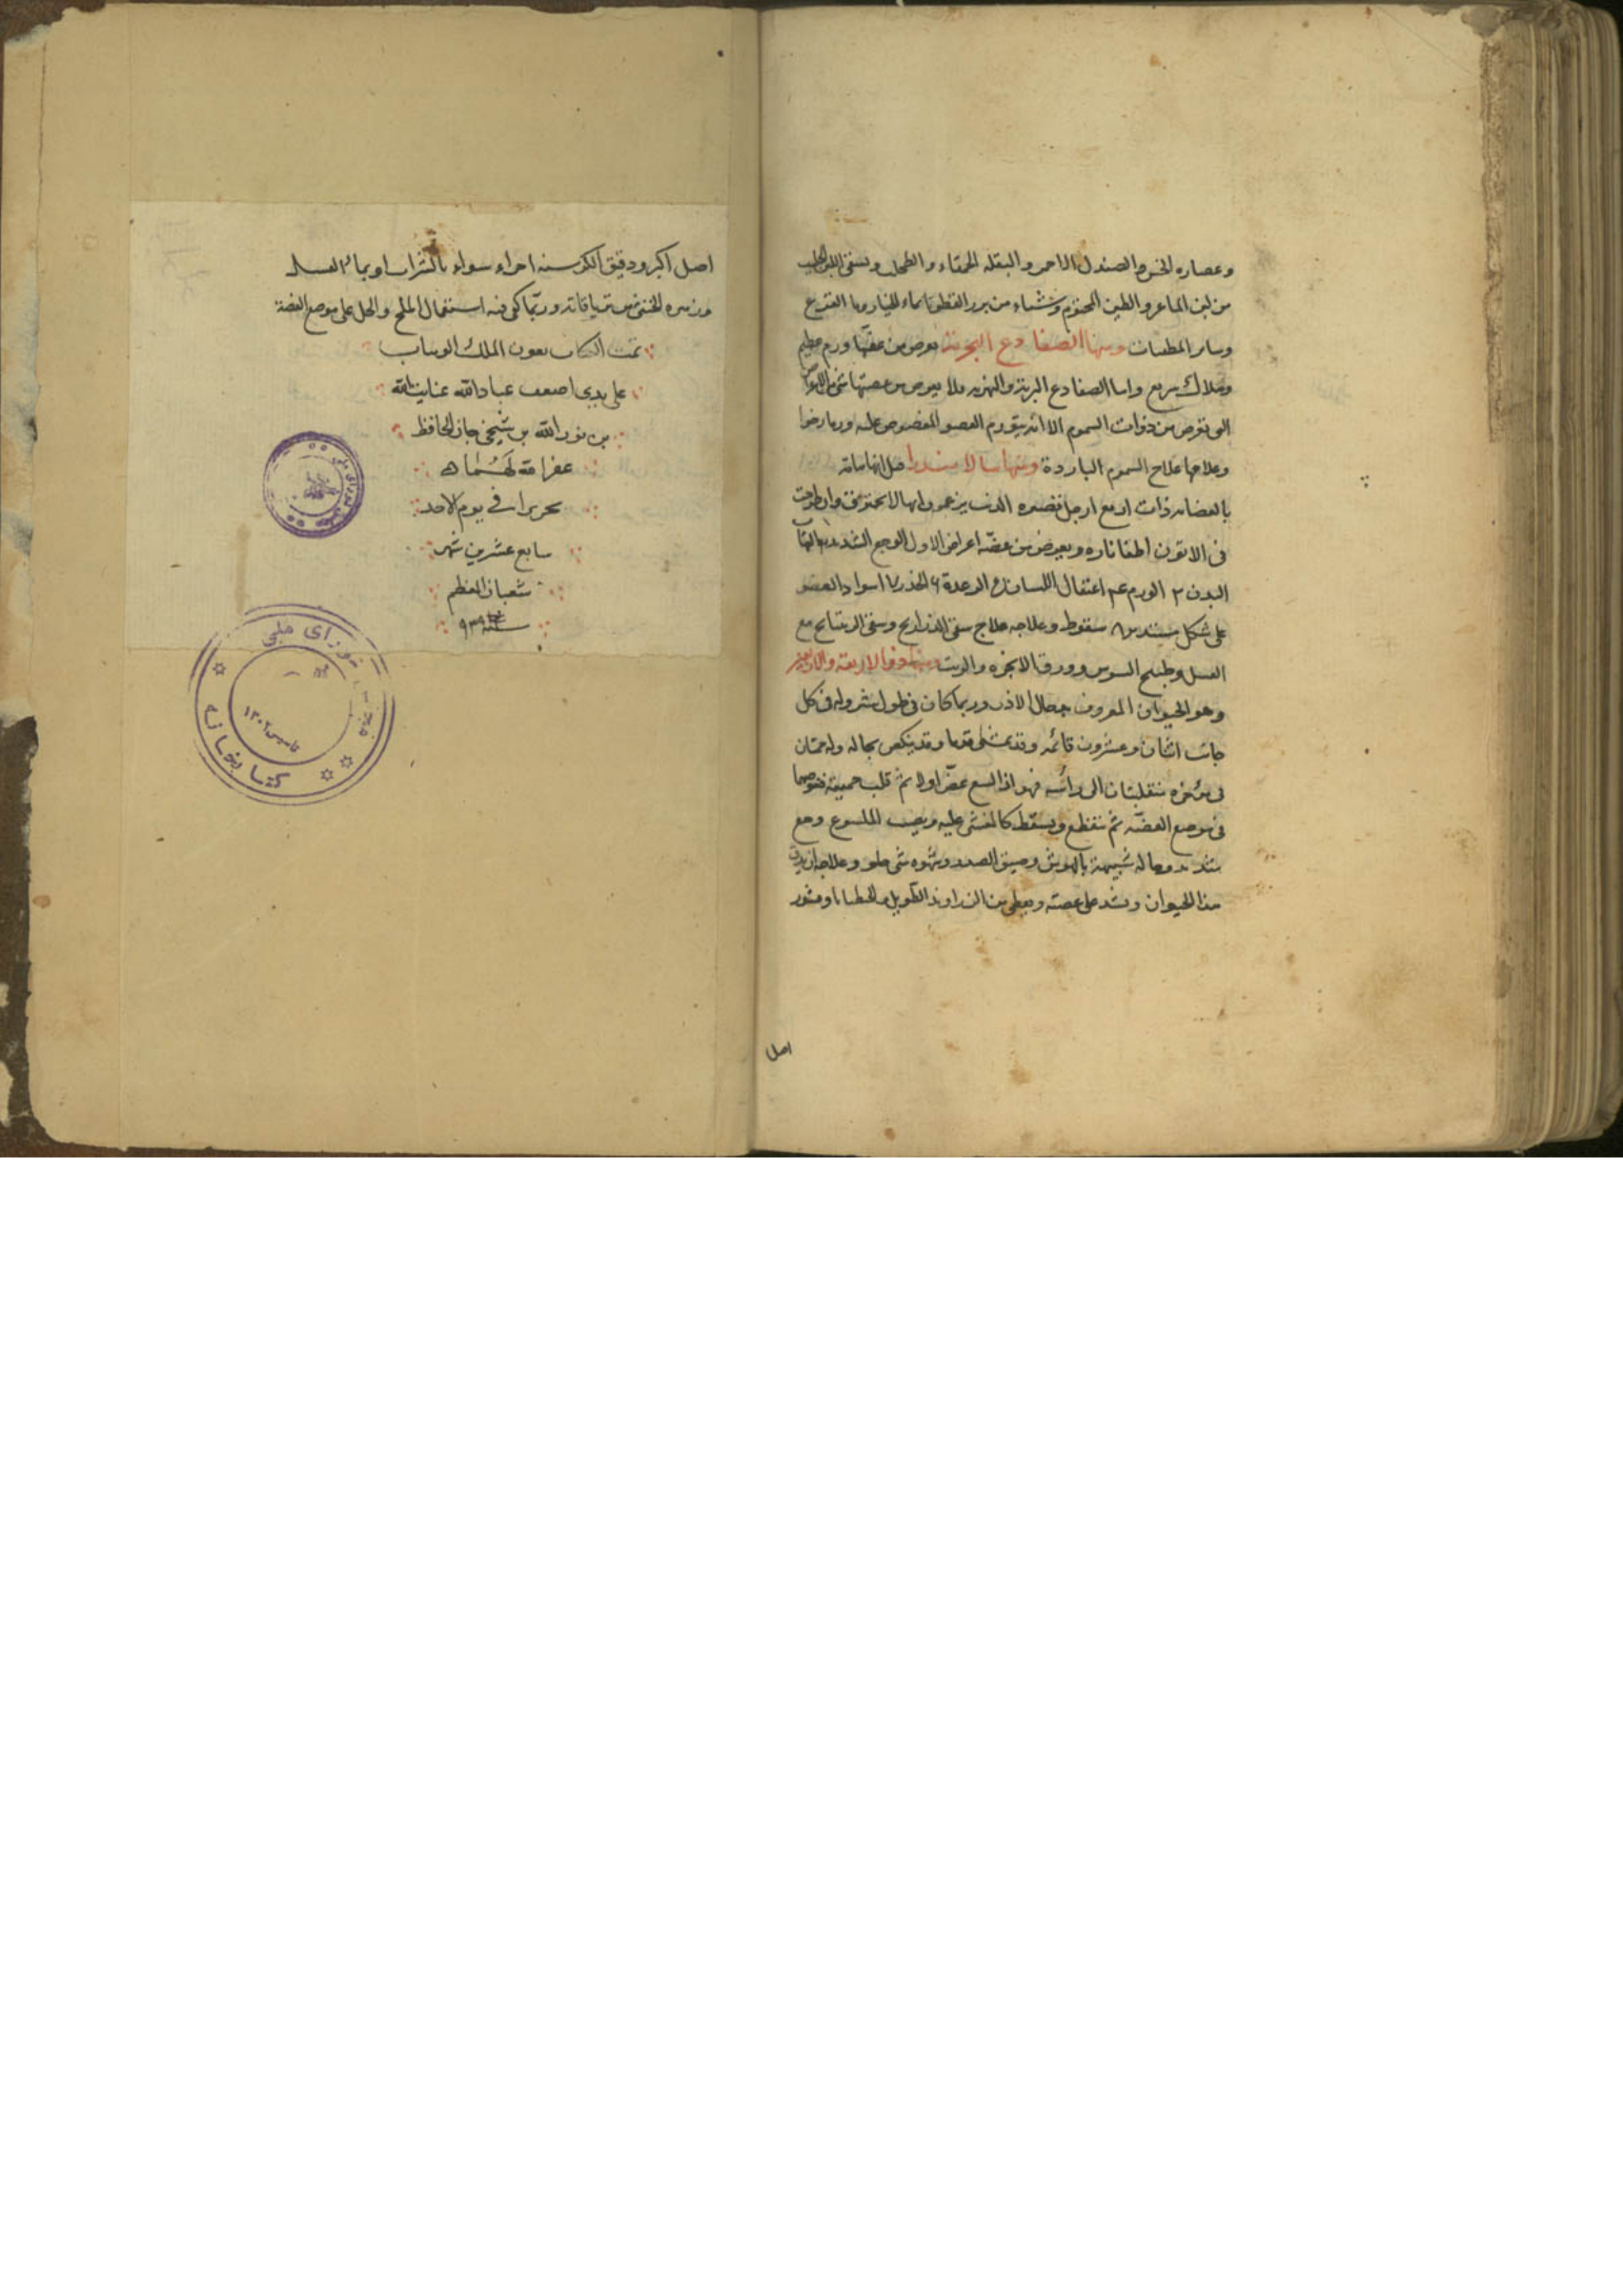 وعصاره الخس والصندل الاحمر والبقله الحمقاء والطحلب ويسقى اللبن الحليب
من لبن الماعز والطين المختوم وشياء من بزر القطونا بماء الخيار وماء القرع
وسائر المطفيات ومنها الضفادع البحرية يعرض من عضها ورم عظيم
وهلاك سريع واما الضفادع البرية والنهرية فلا يعرض من عضتها شئ من الاعراض
التى تعرض من ذوات السموم الا انه يتورم العضو المعضوض عليه وربما رخوا
وعلاجها علاج السموم الباردة ومنها سالامندرا قيل انها سامة
بالعضاية ذات اربع ارجل قصيره الذنب يزعمون انها لا تحترق وان طرحت
فى الاتون اطفا ناره ويعرض من عضه اعراض الاول الوجع الشديد التهاب
البدن ٣ الورم عم اعتقال اللسان الرعدة ٦ الخدر ٧ اسوداد العضو
على شكل مستدير ٨ سقوط وعلاجه علاج سقى الذراريح وسقى الريتيانج مع
العسل وطبيخ السوس وورق الانجره والزيت ومنها ذو الاربعة والاربعين
وهو الحيوان المعروف بدخال الاذن وربما كان فى طول شبر وله فى كل
جانب اثنان وعشرون قائمه وقد يمشى قدما وقد ينكص بحاله وله حمتان
فى مؤخره منقلبتان الى رأسه فهو اذا لسع عض اولا ثم قلب حميته فغرصهما
فى موضع العضه ثم تنقطع ويسقط كالمغشى عليه ويصيب الملسوع وجع
شديد وحاله شبيهة بالوحش وضيق الصدر وشهوه شئ حلو وعلاجه ان يدق
هذا الحيوان ويشد على عضته ويعطى من الزراوند الطويل والخطيانا وقشور
اصل
اصل الكبر ودقيق الكرسنه اجزاء سواء بالشراب او بماء العسل
وزهره الخنثى من ترياقاته وربما كفى فيه استعمال الملح والخل على موضع العضة
تمت الكتاب بعون الملك الوهاب
على يدى اضعف عباد الله عنايت الله
بن نور الله بن شيخى جان الحافظ
غفر الله لهما
تحريرا فى يوم الاحد
سابع عشرين شهر
شعبان المعظم
سنة ٩٣٩
شورای ملی
کتابخانه
تاسیس ۱۳۰۲